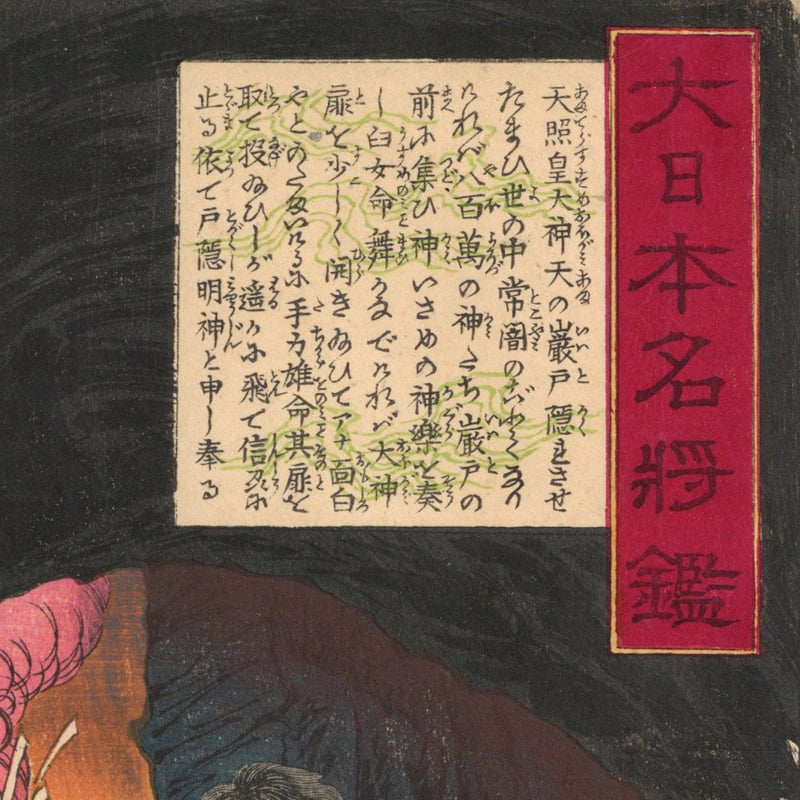 大日本名將鑑
天照皇大神天の巌戸隠まさせ
たまひ世の中常闇のごとくなり
けれバ八百萬の神たち巌戸の
前に集ひ神いさめの神樂を奏
し臼女命舞かなでけれバ大神
扉を少しく開きゐひてアナ面白
やとのたまいけるに手力雄命其扉を
取て投ゐひしが遥かに飛て信及に
止る依て戸隠明神と申し奉る